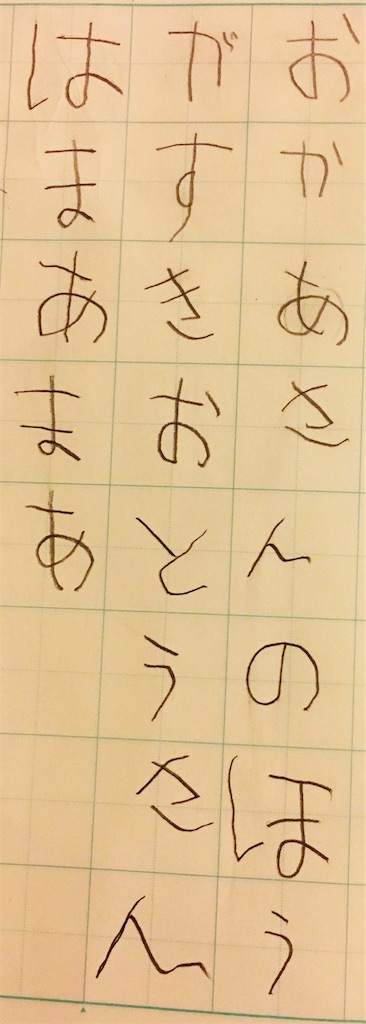 おかあさんのほう
がすきおとうさん
はまあまあ